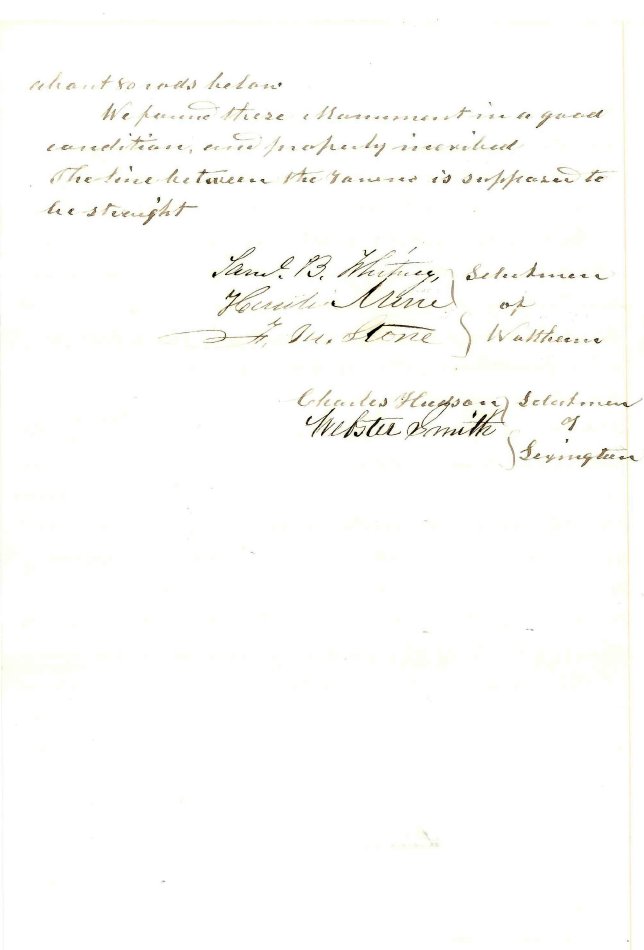 about 80 rods below
We found these Monument in a good
condition, and properly inscribed
The line between the towns is supposed to
be straight
Saml. B. Whitney, Selectmen
of
F. M. Stone Waltham
Charles Hudson Selectmen
Webster Smith of
Lexington